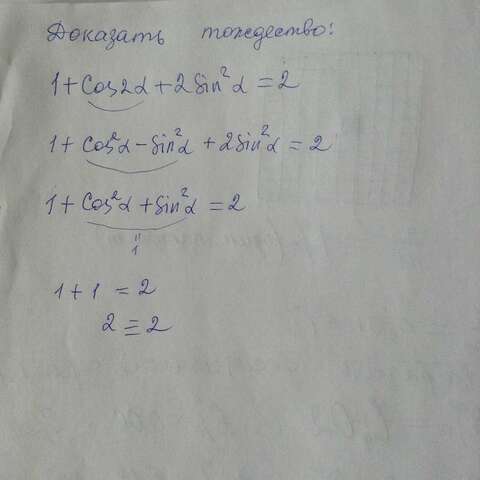 Доказать тождество:
1 + Cos2α + 2Sin²α = 2
1 + Cos²α − Sin²α + 2Sin²α = 2
1 + Cos²α + Sin²α = 2
"
1
1 + 1 = 2
2 ≡ 2